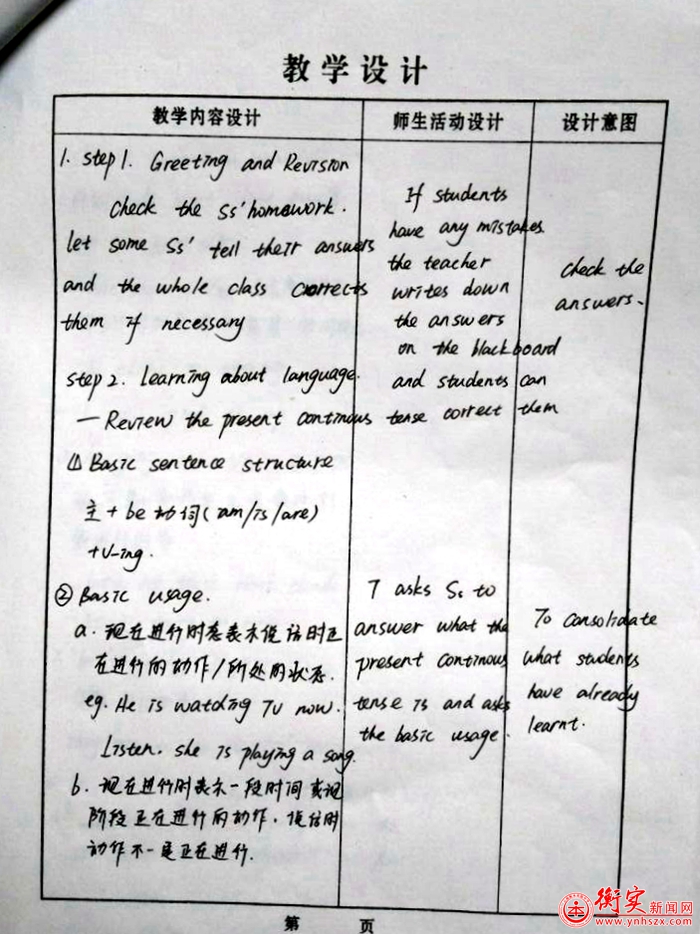 教学设计
教学内容设计 师生活动设计 设计意图
1. step 1. Greeting and Revision
Check the Ss' homework.
let some Ss' tell their answers
and the whole class corrects
them if necessary
step 2. Learning about language.
— Review the present continous tense
① Basic sentence structure
主 + be 动词(am/is/are)
+V-ing.
② Basic usage.
a. 现在进行时态表示说话时正
在进行的动作/所处的状态.
eg. He is watching TV now.
Listen. she is playing a song.
b. 现在进行时表示一段时间或现
阶段正在进行的动作. 说话时
动作不一定正在进行.
If students
have any mistakes
the teacher
writes down
the answers
on the blackboard
and students can
correct them
T asks Ss to
answer what the
present continous
tense is and asks
the basic usage.
check the
answers.
To consolidate
what students
have already
learnt.
第 页
衡实新闻网
www.ynhszx.com